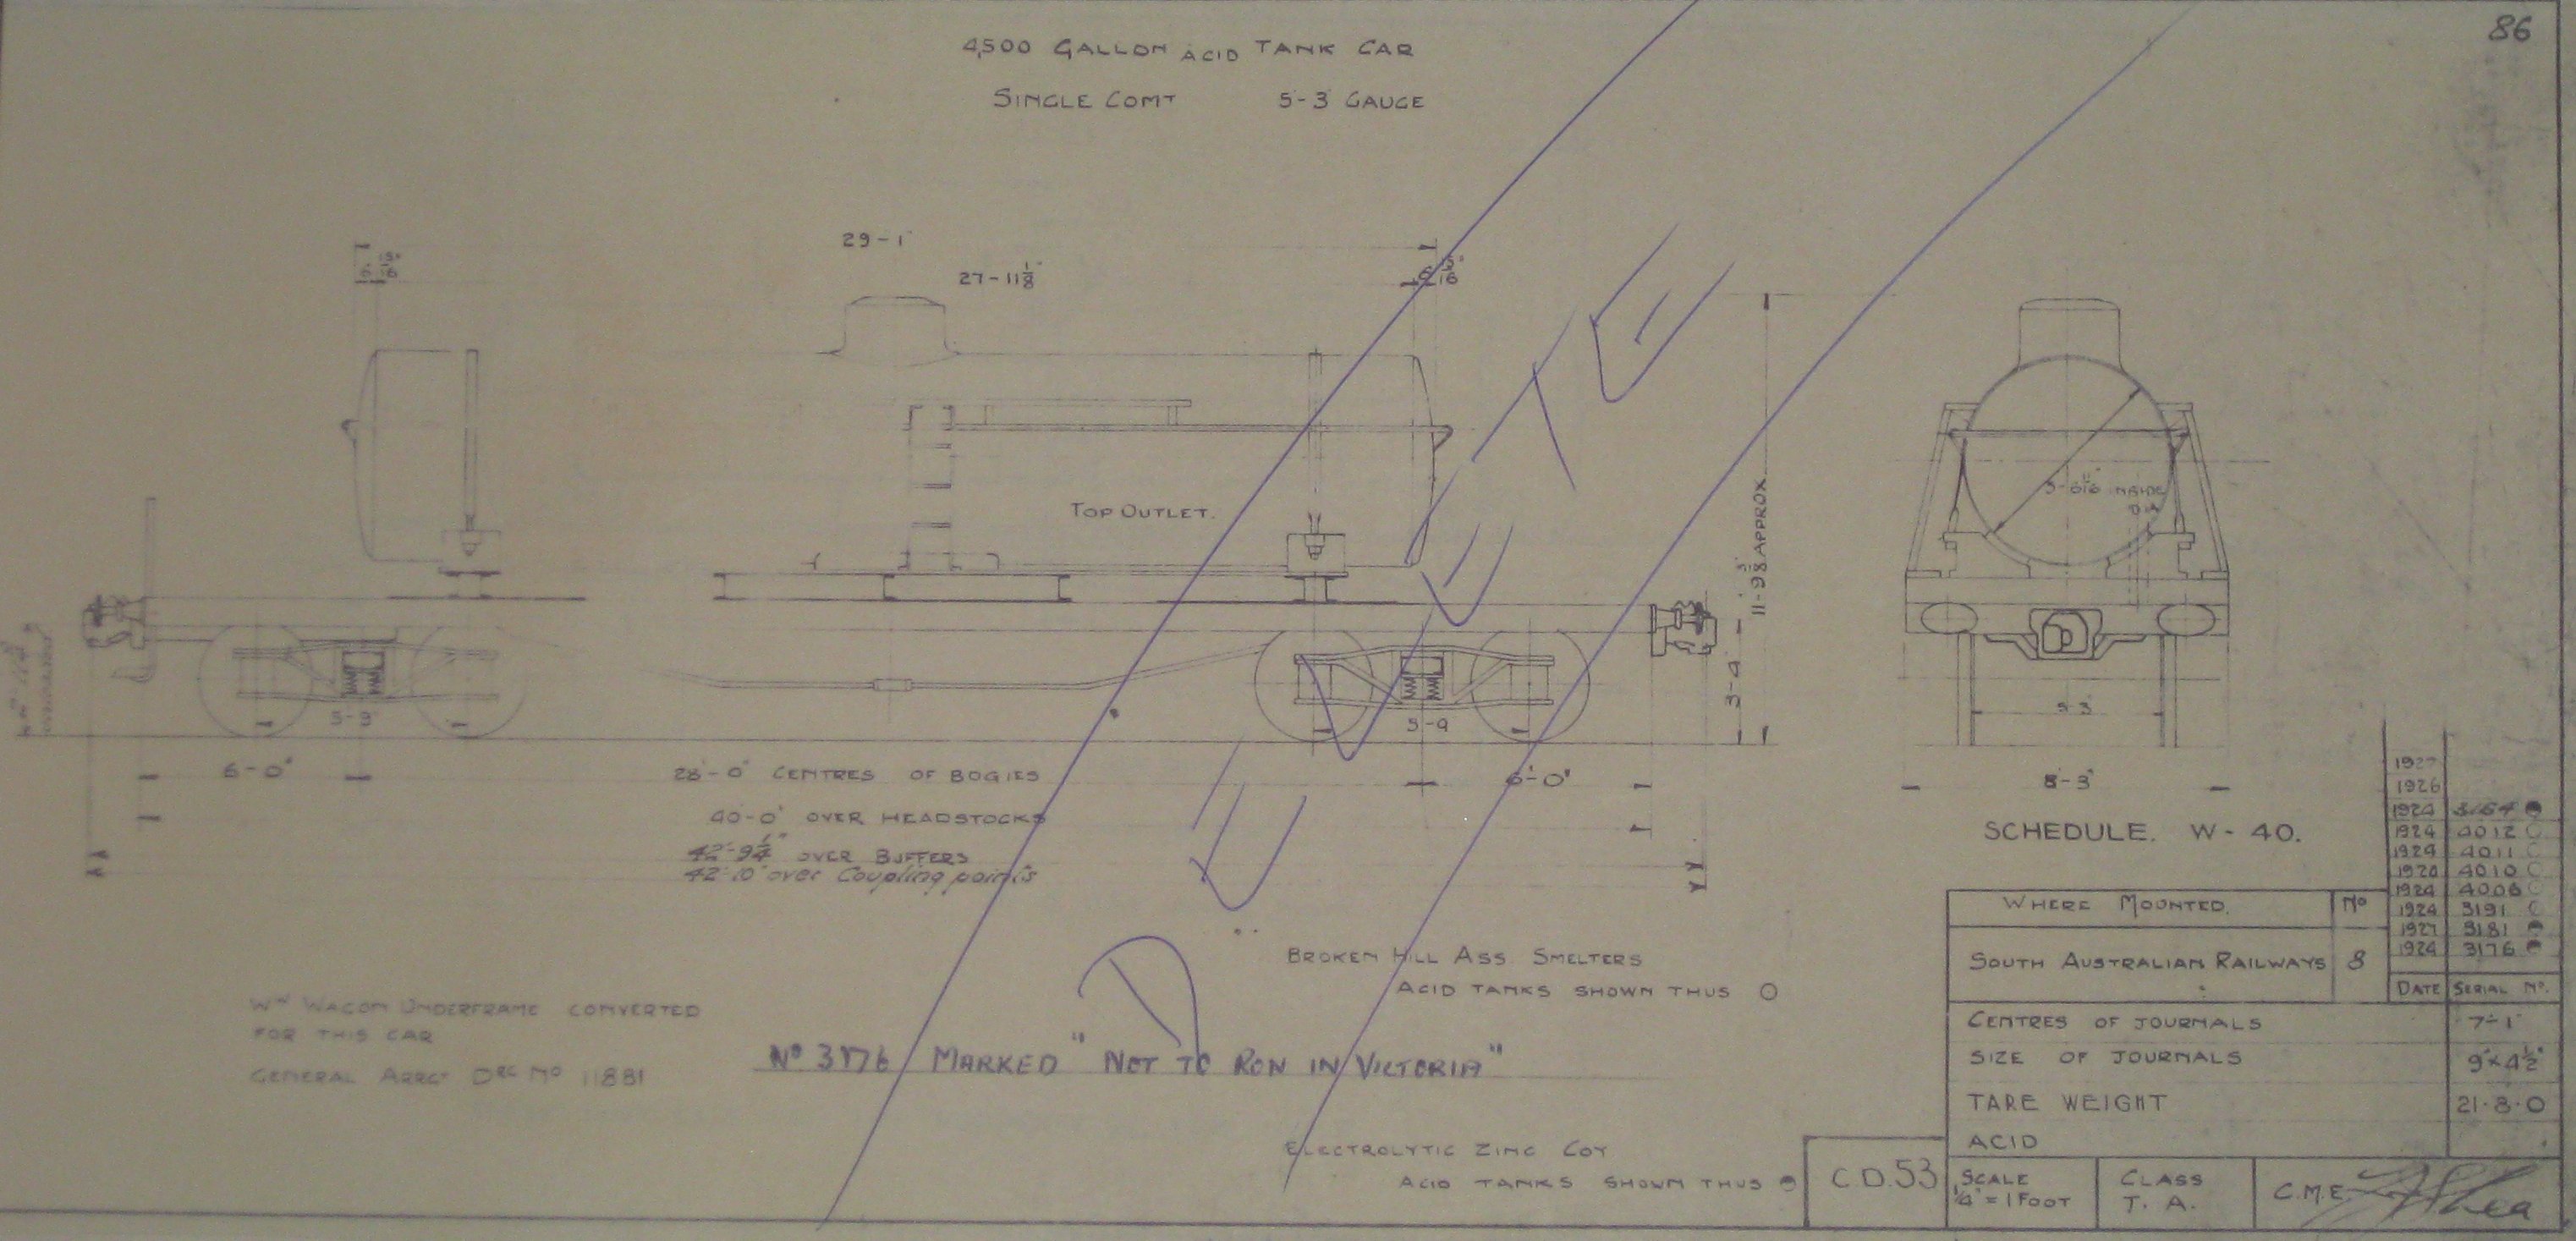 86
4,500 GALLON ACID TANK CAR
SINGLE COMT 5-3 GAUGE
29-1"
27-11 1/8"
6 15/16"
6 15/16"
TOP OUTLET.
11-9 5/8 APPROX.
3-4
5-9
5-9
6-0"
28'-0" CENTRES OF BOGIES
6'-0"
40-0" OVER HEADSTOCKS
42'-9 1/4" OVER BUFFERS
42'-10" over Coupling points
INSIDE DIA
5-3
8'-3"
SCHEDULE. W-40.
DELETED
BROKEN HILL ASS. SMELTERS
ACID TANKS SHOWN THUS ○
WN WAGON UNDERFRAME CONVERTED
FOR THIS CAR
GENERAL ARRGT DRG NO 11881
No 3176 MARKED "NOT TO RUN IN VICTORIA"
ELECTROLYTIC ZINC COY
ACID TANKS SHOWN THUS ◓
1927
1926
1924 3164
1924 4012
1924 4011
4010
1924 4006
1924 3191
1927 3181
1924 3176
DATE SERIAL No.
WHERE MOUNTED. No
SOUTH AUSTRALIAN RAILWAYS 8
CENTRES OF JOURNALS 7-1"
SIZE OF JOURNALS 9"x4 1/2"
TARE WEIGHT 21.8.0
ACID
C.D.53
SCALE 1/4" = 1 FOOT
CLASS T.A.
C.M.E.